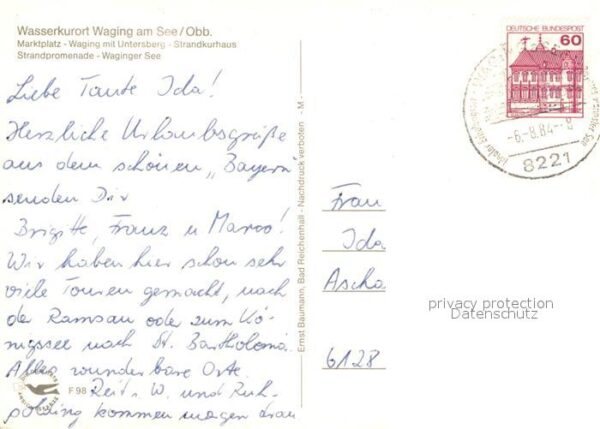 Wasserkurort Waging am See/Obb.
Marktplatz - Waging mit Untersberg - Strandkurhaus
Strandpromenade - Waginger See
Liebe Tante Ida!
Herzliche Urlaubsgrüße
aus dem schönen „Bayern"
senden Dir
Brigitte, Franz u Marco!
Wir haben hier schon sehr
viele Touren gemacht, nach
der Ramsau oder zum Kö-
nigssee nach St. Bartholomä.
Alles wunderbare Orte.
Reit i. W. und Ruh-
polding kommen morgen dran
F 98
Ernst Baumann, Bad Reichenhall - Nachdruck verboten - M
DEUTSCHE BUNDESPOST
60
-6.-8.84--8
8221
Frau
Ida
Ascha
6128
privacy protection
Datenschutz